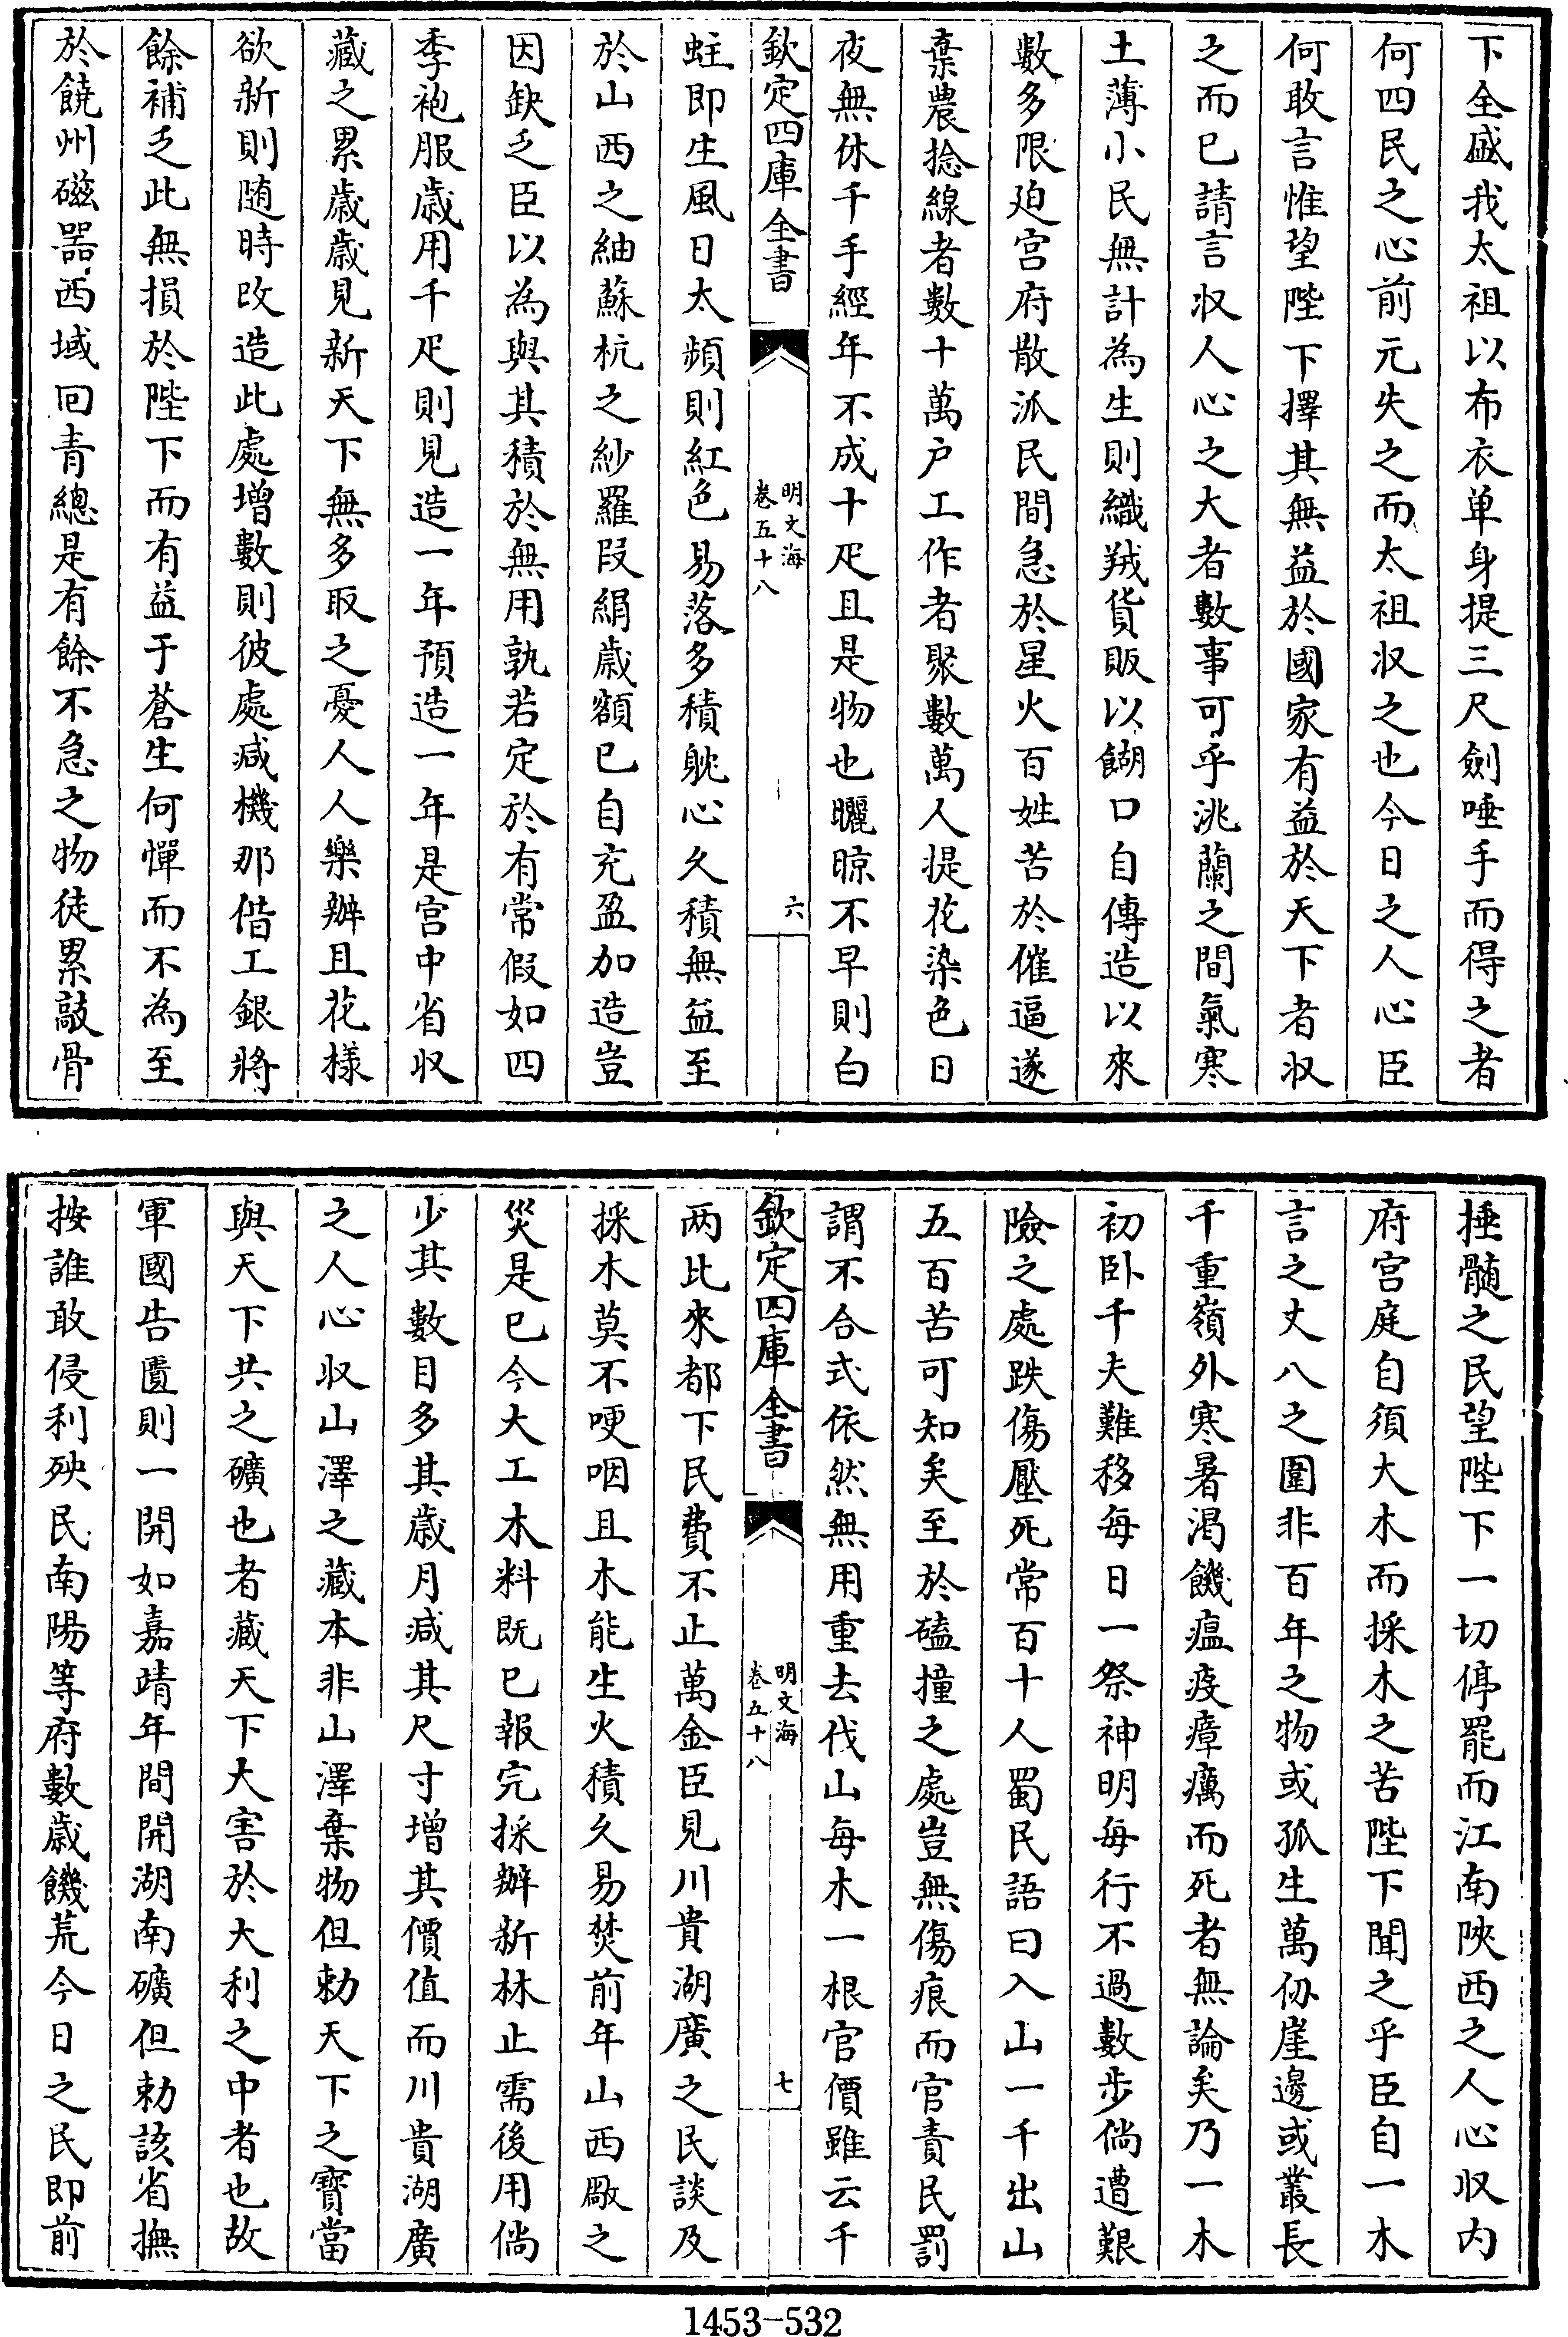 下全盛我太祖以布衣单身提三尺劍唾手而得之者
何四民之心前元失之而太祖収之也今日之人心臣
何敢言惟望陛下擇其無益於國家有益於天下者収
之而已請言収人心之大者數事可乎洮蘭之間氣寒
土薄小民無計為生則織羢貨販以餬口自傳造以來
數多限廹宫府散派民間急於星火百姓苦於催逼遂
棄農捻線者數十萬户工作者聚數萬人提花染色日
夜無休千手經年不成十疋且是物也曬晾不早則白
欽定四庫全書
明文海
卷五十八
六
蛀即生風日太頻則紅色易落多積躭心久積無益至
於山西之紬蘇杭之紗羅叚絹歳額已自充盈加造豈
因缺乏臣以為與其積於無用孰若定於有常假如四
季袍服歳用千疋則見造一年預造一年是宫中省収
藏之累歳歳見新天下無多取之憂人人樂辦且花樣
欲新則随時改造此處增數則彼處减機那借工銀將
餘補乏此無損於陛下而有益于蒼生何憚而不為至
於饒州磁器西域回青總是有餘不急之物徒累敲骨
捶髓之民望陛下一切停罷而江南陜西之人心収内
府宫庭自須大木而採木之苦陛下聞之乎臣自一木
言之丈八之圍非百年之物或孤生萬仞崖邊或叢長
千重嶺外寒暑渇饑瘟疫瘴癘而死者無論矣乃一木
初卧千夫難移每日一祭神明每行不過數步倘遭艱
險之處跌傷壓死常百十人蜀民語曰入山一千出山
五百苦可知矣至於磕撞之處豈無傷痕而官責民罰
謂不合式依然無用重去伐山每木一根官價雖云千
欽定四庫全書
明文海
卷五十八
七
两比來都下民費不止萬金臣見川貴湖廣之民談及
採木莫不哽咽且木能生火積久易焚前年山西厰之
災是已今大工木料既已報完採辦新林止需後用倘
少其數目多其歳月减其尺寸增其價值而川貴湖廣
之人心収山澤之藏本非山澤棄物但勅天下之寳當
與天下共之礦也者藏天下大害於大利之中者也故
軍國告匱則一開如嘉靖年間開湖南礦但勅該省撫
按誰敢侵利殃民南陽等府數歳饑荒今日之民即前
1453-532